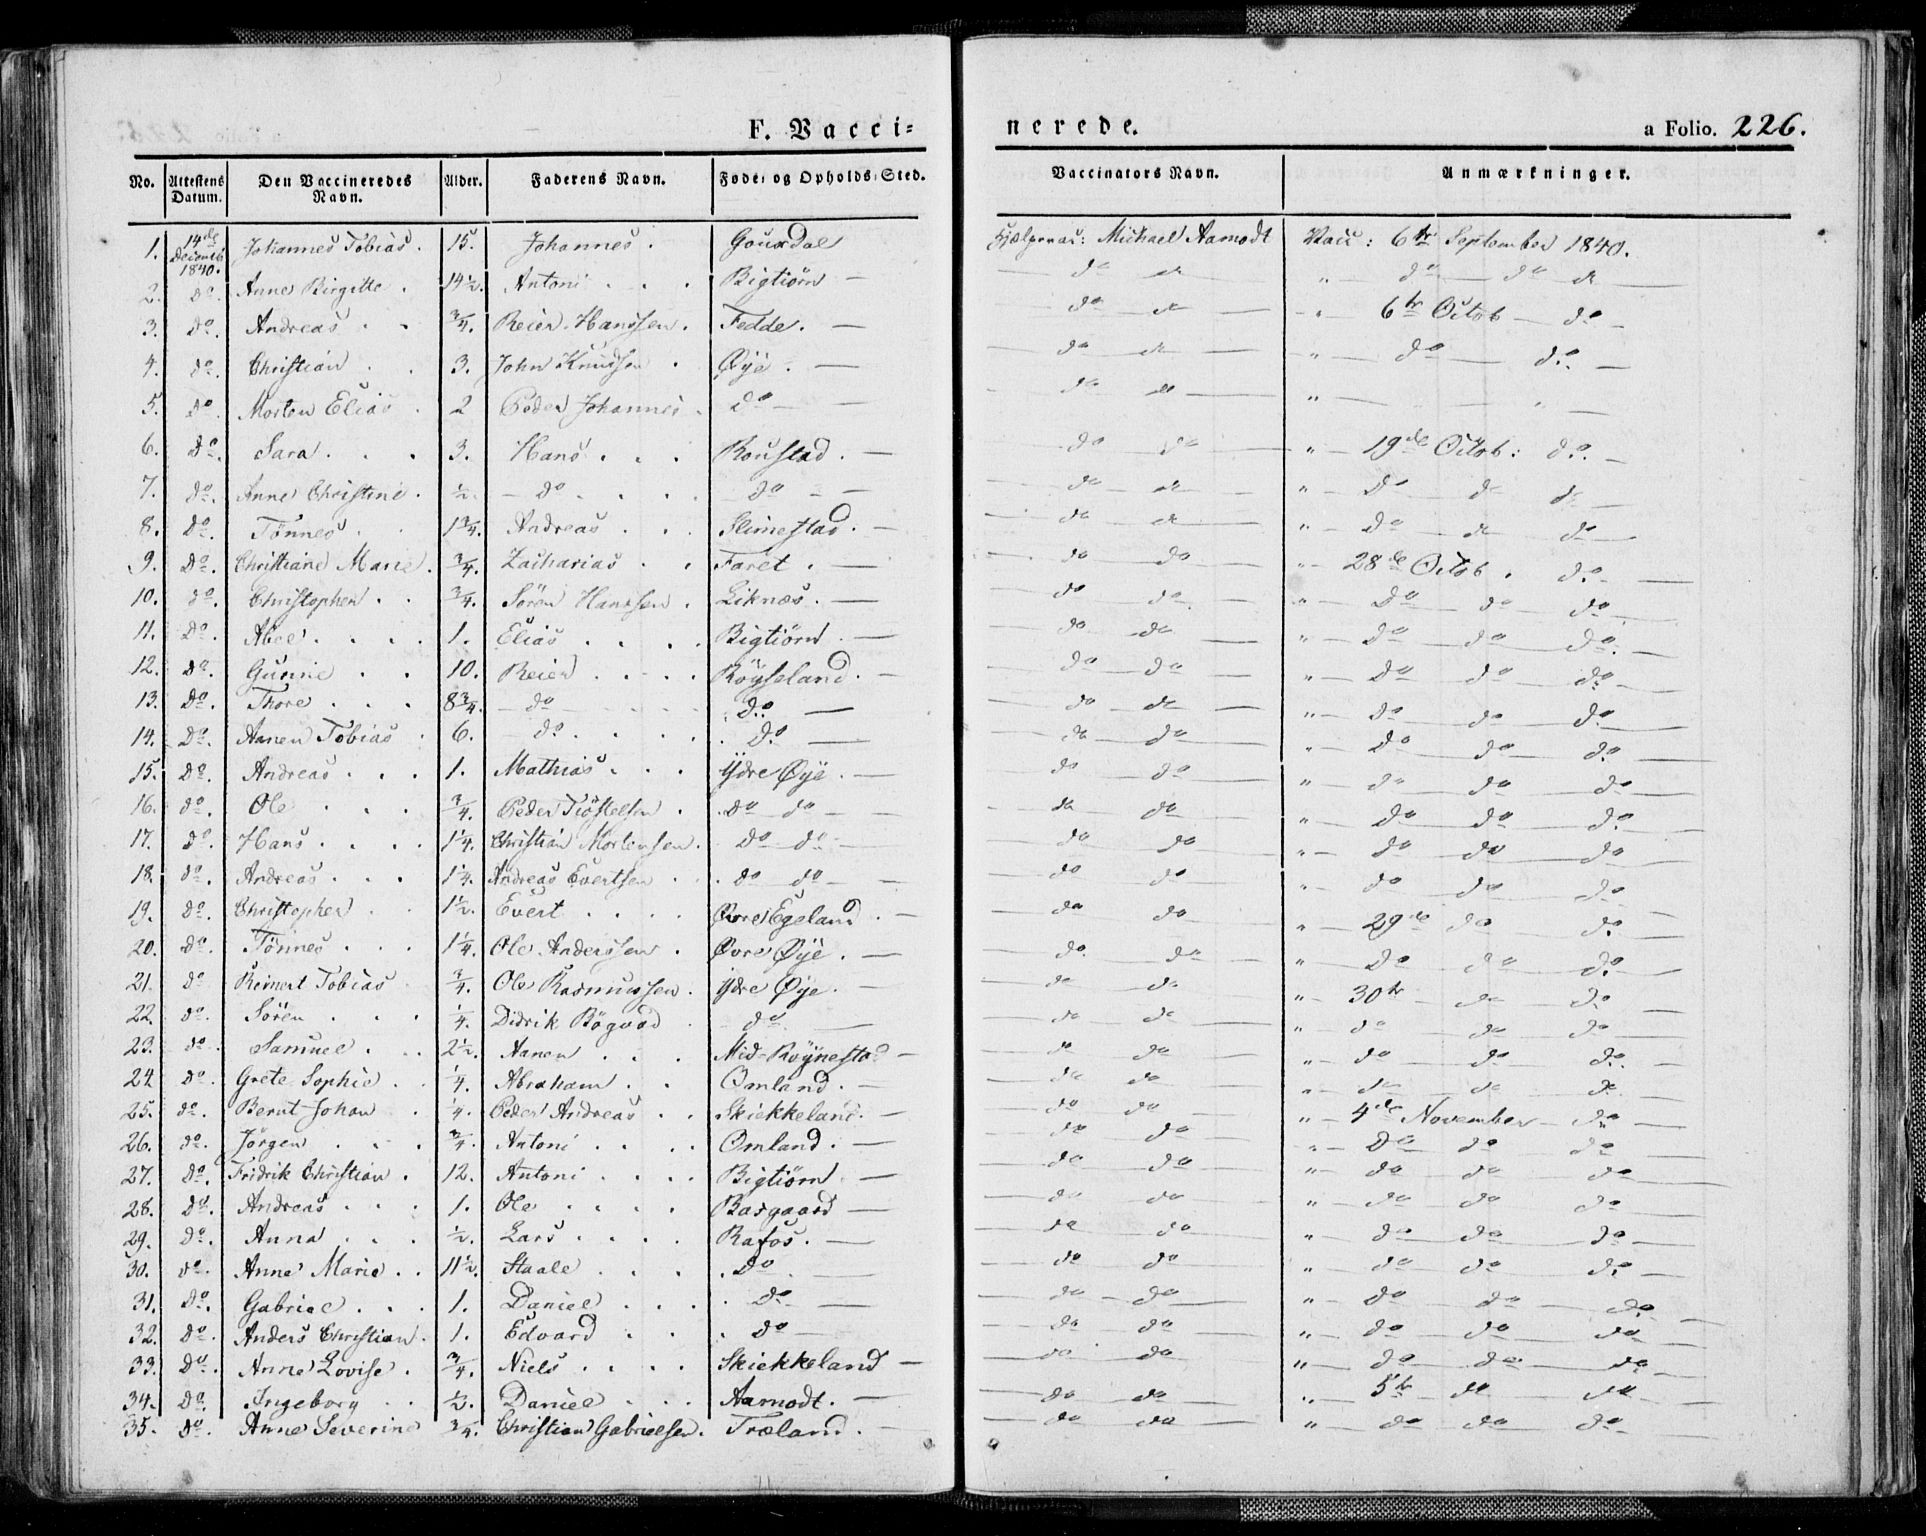 F. Vacci= nerede. a Folio. 226.
No. Attestens Datum. Den Vaccineredes Navn. Alder. Faderens Navn. Føde- og Opholds-Sted. Vaccinators Navn. Anmærkninger.
1. 14de Decemb 1840. Johannes Tobias. 15. Johannes. Gourdal Hjælpevac: Michael Aamodt Vacc: 6te September 1840.
2. do. Anne Birgitte. 14½. Antoni Bigtiørn — do do " do do do
3. do. Andreas ¾. Reier Hanssen. Fedde. — do do " 6te Octob — do
4. do. Christian 3. John Knudsen. Øÿe. — do do " do do.
5. do. Morten Elias 2 Peder Johannes. do — do do " "
6. do. Sara. 3. Hans. Ronstad. — do do " 19de Octob: do.
7. do. Anne Christine. ½. do do — do do " do do do
8. do. Tønnes 1¾. Andreas Slimestad. — do do " do do do
9. do. Christiane Marie. ¾. Zacharias Faret. — do do " 28de Octob. do.
10. do. Christopher. ¾. Søren Hanssen. Liknæs. — do do " do do do
11. do. Abel 1. Elias Bigtiørn. — do do " do do do.
12. do. Gunnie 10. Reier Röyseland. — do do " do do do
13. do. Thore 8¾. do do. — do do " do do do
14. do. Aanen Tobias 6. do. do. — do do " do do do
15. do. Andreas 1. Mathias. Ydre Øye. — do do " do do do
16. do. Ole ¾. Peder Tiöstelsen. do do — do do " do do do
17. do. Hans 1¼. Christian Mortensen. do do — do do " do do do
18. do. Andreas 1¼. Andreas Evertsen do do — do do " do do do
19. do. Christopher 1½. Evert Øvre Egeland. — do do " 29de do do
20. do. Tönnes 1¼. Ole Anderssen. Øvre Øÿe. — do do " do do do
21. do Reinert Tobias ¾. Ole Rasmussen. ÿdre Øye. — do do " 30te do do
22. do. Sören ¼. Didrik Bögvad do — do do " do do do
23. do. Samuel. 2½. Aanen Mid-Röÿnestad — do do " do do do.
24. do. Grete Sophie ¼. Abraham Omland. — do do " do do do
25. do. Bernt Johan ¼. Peder Andreas Skiekkeland. — do do " 4de November — do
26. do. Jörgen ¾. Antoni Omland. — do do " do do do
27. do. Fridrik Christian. 12. Antoni Bigtiørn — do do " do do do
28. do. Andreas 1. Ole Basgaard — do do " do do do
29. do. Anna ½. Lars Rafos. — do do " do do do
30. do. Anne Marie. 11½. Staale do — do do " do do do
31. do. Gabriel 1. Daniel do — do do " do do do
32. do. Anders Christian. 1. Edvard do — do do " do do do
33. do. Anne Lovise. ¾. Niels Skiekkeland — do do " do do do
34. do. Ingeborg ½. Daniel Aamodt. — do do " 5te do do
35. do. Anne Severine ¾. Christian Gabrielsen. Træland. — do do " do do do